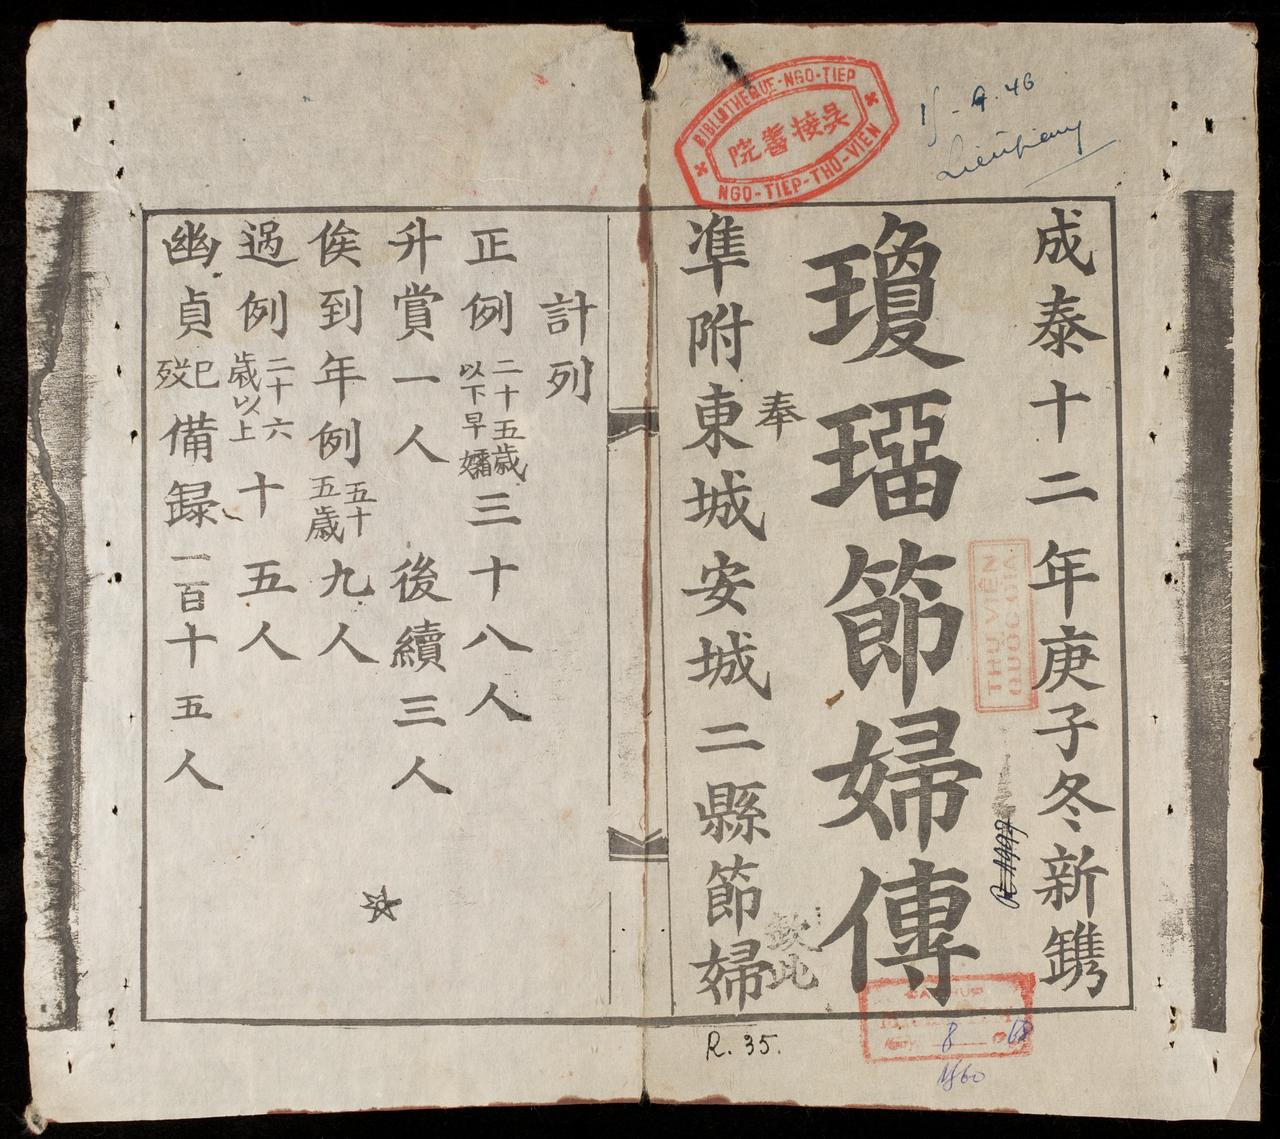 成泰十二年庚子冬新鐫
瓊瑠節婦傳
奉
準附東城安城二縣節婦
欽此
計列
正例二十五歲以下早孀三十八人
升賞一人 後續三人
俟到年例五十五歲九人
過例二十六歲以上十五人
幽貞已歿備録一百十五人
BIBLIOTHÈQUE-NGO-TIEP
院書接吳
NGO-TIEP-THU-VIEN
15-9.46
THƯ VIỆN
QUỐC GIA
R. 35.
8
68